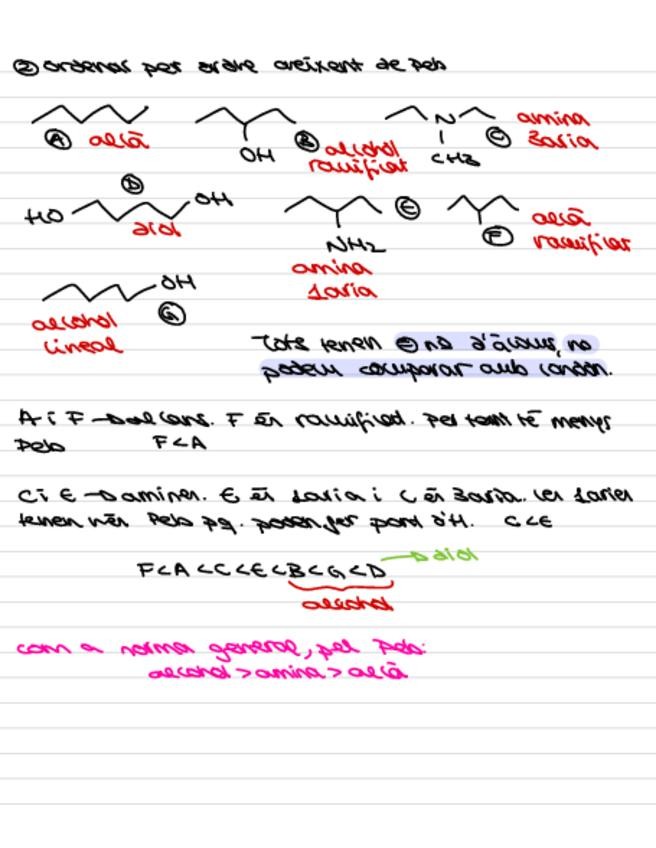 ② ordenar per ordre creixent de Peb
Ⓐ alcà
OH Ⓑ alcohol ramificat
N CH3 Ⓒ amina 3aria
Ⓓ HO OH diol
NH2 Ⓔ amina 1aria
Ⓕ alcà ramificat
OH Ⓖ alcohol lineal
Tots tenen = nº d'àtoms, no
podem comparar amb london.
A i F → alcans. F és ramificat. Per tant té menys
Peb F<A
C i E → amines. E és 1aria i C és 3aria. Les 1aries
tenen més Peb pq. poden fer pont d'H. C<E
F<A<C<E<B<G<D → diol
alcohol
com a norma general, pel Peb:
alcohol > amina > alcà